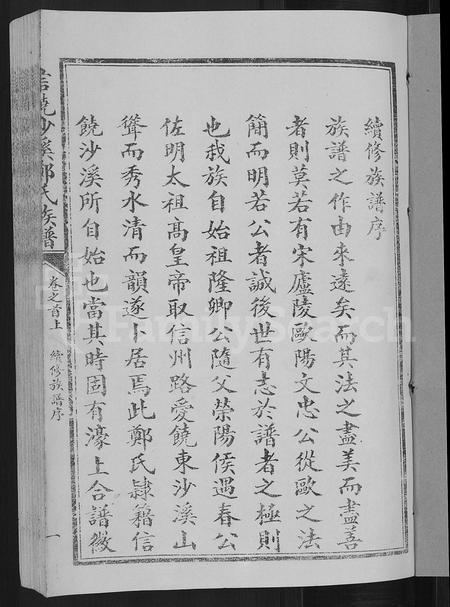 續修族譜序
族譜之作由來遠矣而其法之盡美而盡善
者則莫若有宋廬陵歐陽文忠公從歐之法
簡而明若公者誠後世有志於譜者之極則
也我族自始祖隆卿公隨父滎陽侯遇春公
佐明太祖高皇帝取信州路愛饒東沙溪山
聳而秀水清而韻遂卜居焉此鄭氏隸籍信
饒沙溪所自始也當其時固有濠上合譜徽
信饒沙溪鄭氏族譜
卷之首上 續修族譜序
一
FamilySearch